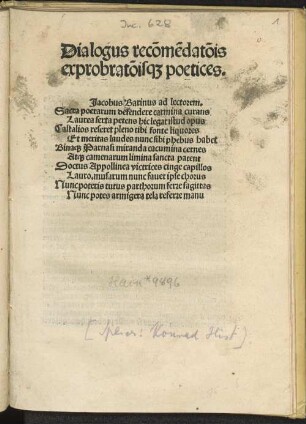 Inc. 628
1
Dialogus recōmēdatōis
exprobratōisqꝫ poetices.
Jacobus Barinus ad lectorem.
Sacra poetarum defendere carmina curans
Laurea serta petens hic legat istud opus
Castalios referet pleno tibi fonte liquores
Et meritas laudes nunc sibi phebus habet
Binaqꝫ Parnasi miranda cacumina cernes
Atqꝫ camenarum limina sancta patent
Doctus Appollinea victrices cinge capillos
Lauro, musarum nunc fauet ipse chorus
Nunc poteris tutus parthorum ferre sagittas
Nunc potes armigera tela referre manu
Hain *9896
Konrad